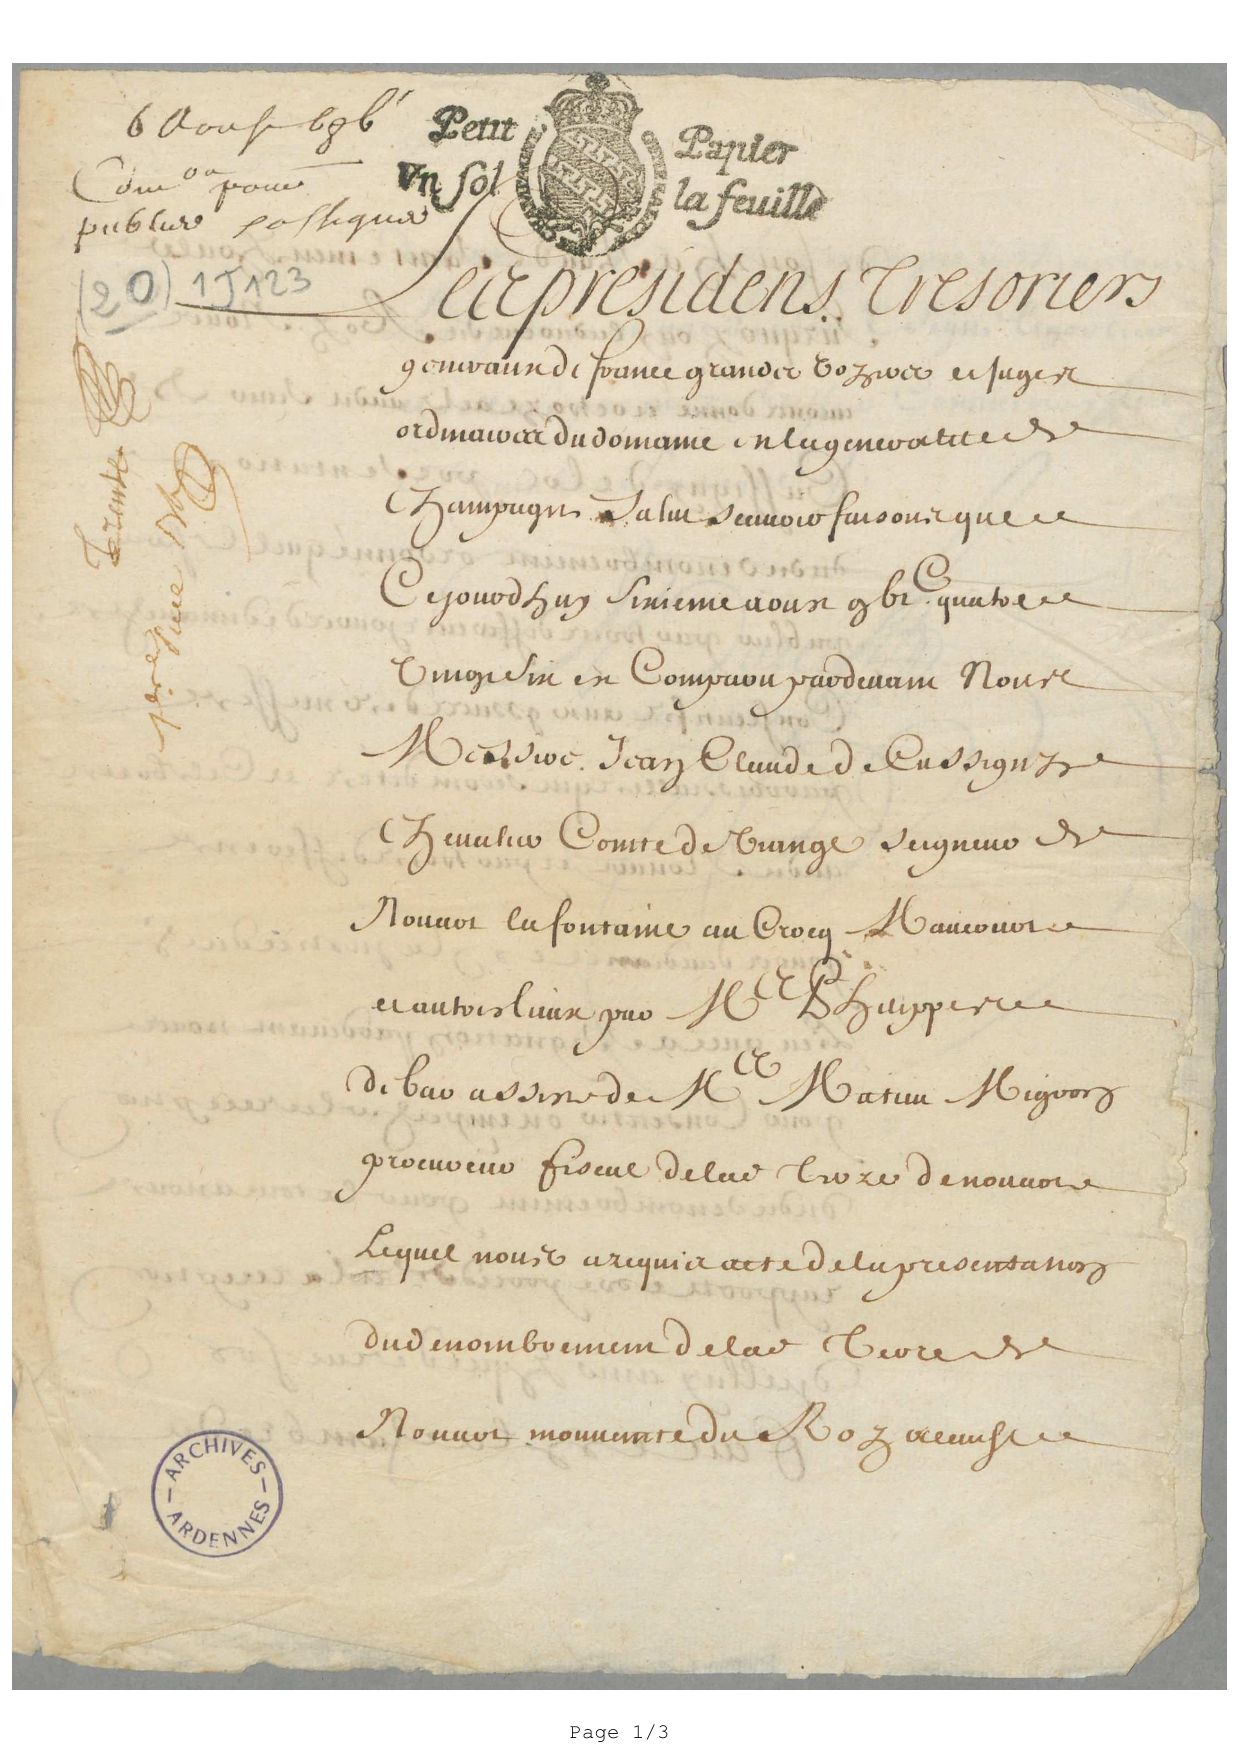 6 Aoust 1686
Petit Papier
Vn sol la feuille
Com.on pour
publier
(20) 1J123
Les presidens Tresoriers
generaux de france grandz Voyers et Juges
ordinaires du domaine en la generalité de
Champagne Salut scauoir faisons que
Ce jourdhuy sixieme aoust gbi.C quatre
Vingt six en Comparu pardeuant Nous
Messire Jean Claude de Cassigny
Cheualier Comte de Viange seigneur de
Nouuot la fontaine au Crocq Maucourt
et autres lieux par M.e Phippes
de bar assisté de M.e Matieu Migeon
procureur fiscal de lad Terre de nouuot
Lequel nous a requis acte de la presentation
du denombrement de lad Terre de
Nouuot mouuante du Roy a cause
trente
piece
ARCHIVES
ARDENNES
Page 1/3